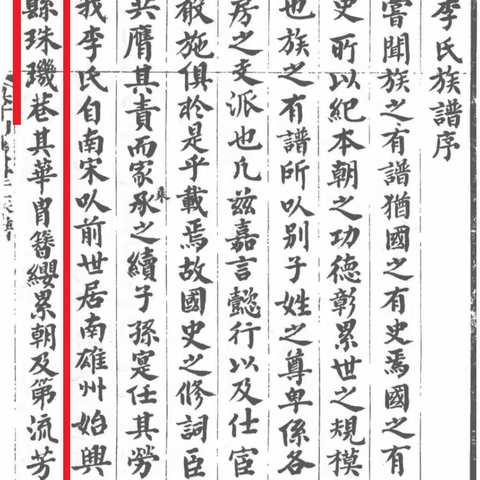 李氏族譜序
嘗聞族之有譜猶國之有史焉國之有
史所以紀本朝之功德彰累世之規模
也族之有譜所以别子姓之尊卑係各
房之支派也凡兹嘉言懿行以及仕宦
施俱於是乎載焉故國史之修詞臣
共膺其責而家承之續子孫寔任其勞
乘
我李氏自南宋以前世居南雄州始興
縣珠璣巷其華胄簪纓累朝及第流芳